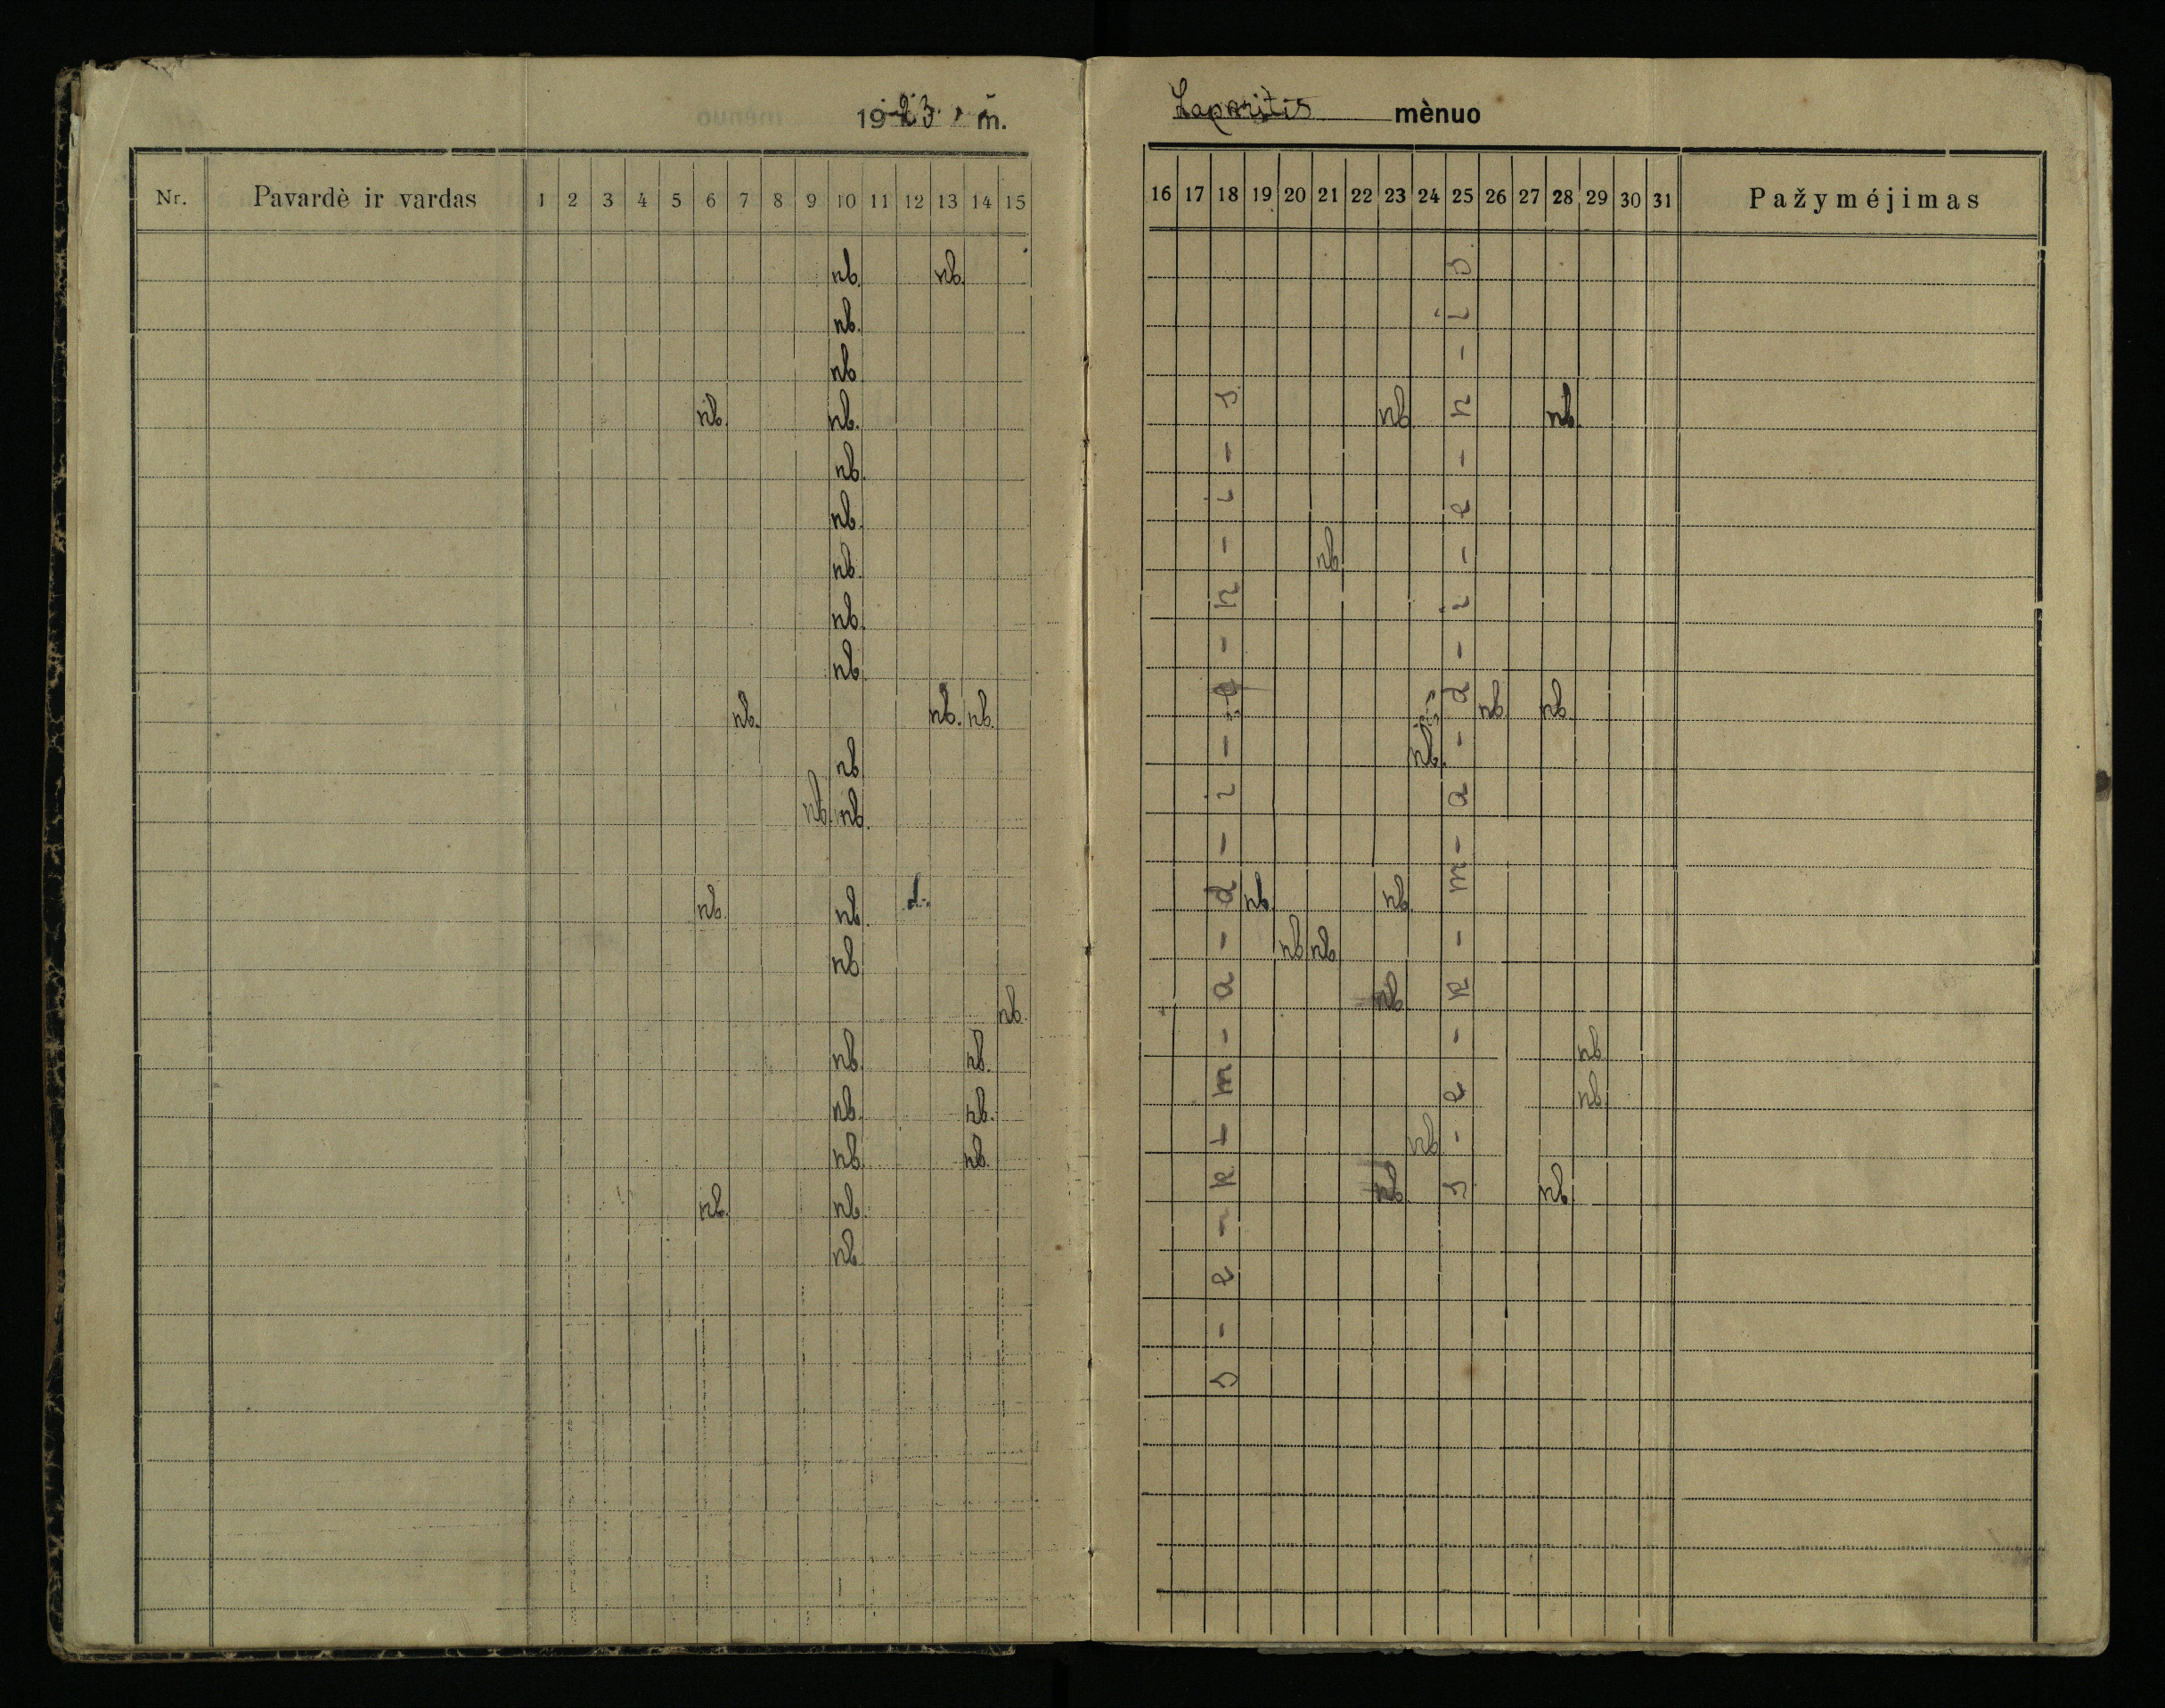 1923 m.
Nr. Pavardė ir vardas 1 2 3 4 5 6 7 8 9 10 11 12 13 14 15
nb. nb.
nb.
nb.
nb. nb.
nb.
nb.
nb.
nb.
nb.
nb. nb. nb.
nb.
nb. nb.
nb. nb. d.
nb.
nb.
nb. nb.
nb. nb.
nb. nb.
nb. nb.
nb.
Lapkritis mènuo
16 17 18 19 20 21 22 23 24 25 26 27 28 29 30 31 Pažymėjimas
s-e-k-m-a-d-i-e-n-i-s
s-e-k-m-a-d-i-e-n-i-s
nb. nb.
nb.
nb. nb.
nb.
nb. nb.
nb. nb.
nb.
nb.
nb.
nb.
nb. nb.